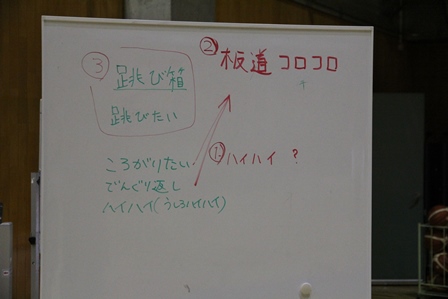 ③
跳び箱
跳びたい
②板道コロコロ
ころがりたい
でんぐり返し
ハイハイ(うしろハイハイ)
①ハイハイ ?